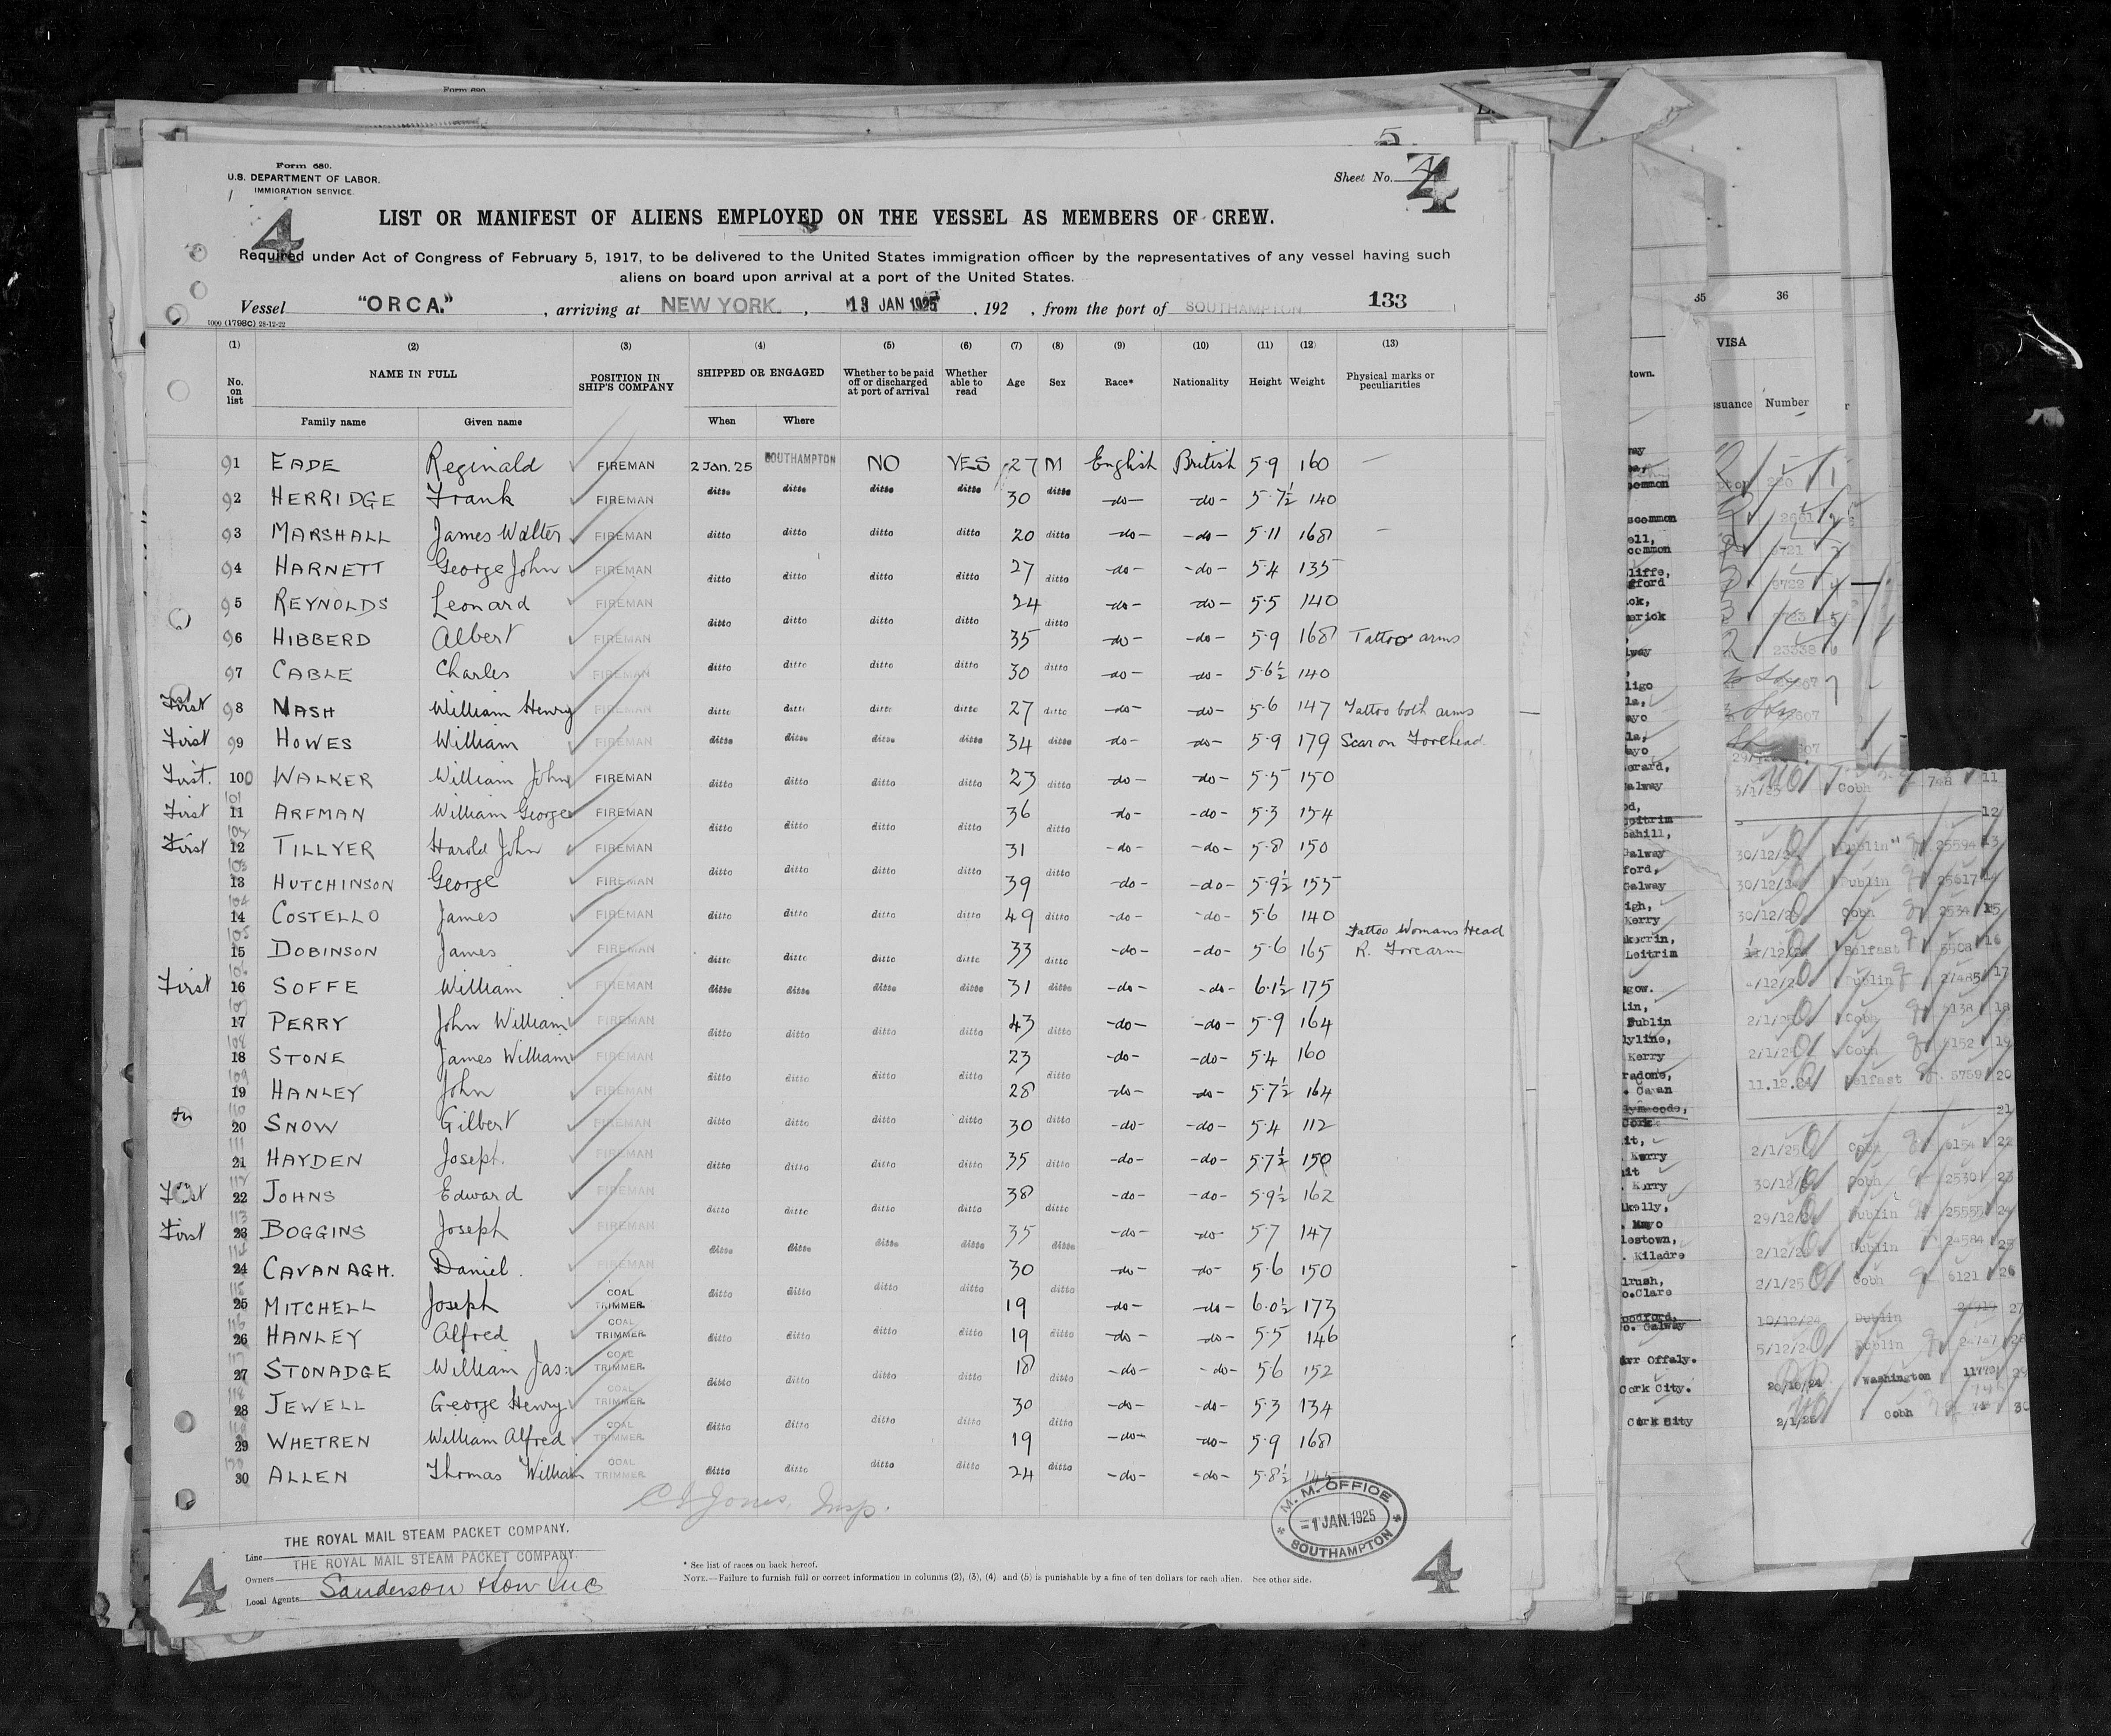 Form 680.
U.S. DEPARTMENT OF LABOR.
IMMIGRATION SERVICE.
Sheet No. 4
4
LIST OR MANIFEST OF ALIENS EMPLOYED ON THE VESSEL AS MEMBERS OF CREW.
Required under Act of Congress of February 5, 1917, to be delivered to the United States immigration officer by the representatives of any vessel having such
aliens on board upon arrival at a port of the United States.
Vessel "ORCA." , arriving at NEW YORK. , 13 JAN 1925 , 192 , from the port of SOUTHAMPTON 133
1000 (1798c) 28-12-22
(1) (2) (3) (4) (5) (6) (7) (8) (9) (10) (11) (12) (13)
No. on list NAME IN FULL POSITION IN SHIP'S COMPANY SHIPPED OR ENGAGED Whether to be paid off or discharged at port of arrival Whether able to read Age Sex Race* Nationality Height Weight Physical marks or peculiarities
Family name Given name When Where
91 EADE Reginald FIREMAN 2 Jan. 25 SOUTHAMPTON NO YES 27 M English British 5·9 160 —
92 HERRIDGE Frank FIREMAN ditto ditto ditto ditto 30 ditto -do- -do- 5·7½ 140
93 MARSHALL James Walter FIREMAN ditto ditto ditto ditto 20 ditto -do- -do- 5·11 168 —
94 HARNETT George John FIREMAN ditto ditto ditto ditto 27 ditto -do- -do- 5·4 135
95 REYNOLDS Leonard FIREMAN ditto ditto ditto ditto 24 ditto -do- -do- 5·5 140
96 HIBBERD Albert FIREMAN 35 -do- -do- 5·9 168 Tattoo arms
97 CABLE Charles FIREMAN ditto ditto ditto ditto 30 ditto -do- -do- 5·6½ 140
First 98 NASH William Henry FIREMAN ditto ditto ditto ditto 27 ditto -do- -do- 5·6 147 Tattoo both arms
First 99 HOWES William FIREMAN ditto ditto ditto ditto 34 ditto -do- -do- 5·9 179 Scar on Forehead
First. 100 WALKER William John FIREMAN ditto ditto ditto ditto 23 ditto -do- -do- 5·5 150
First 101 11 ARFMAN William George FIREMAN ditto ditto ditto ditto 36 ditto -do- -do- 5·3 154
First 102 12 TILLYER Harold John FIREMAN 31 -do- -do- 5·8 150
103 13 HUTCHINSON George FIREMAN ditto ditto ditto ditto 39 ditto -do- -do- 5·9½ 155
104 14 COSTELLO James FIREMAN ditto ditto ditto ditto 49 ditto -do- -do- 5·6 140
105 15 DOBINSON James FIREMAN ditto ditto ditto ditto 33 ditto -do- -do- 5·6 165 Tattoo Womans Head R. Forearm
First 106 16 SOFFE William FIREMAN ditto ditto ditto ditto 31 ditto -do- -do- 6·1½ 175
107 17 PERRY John William FIREMAN ditto ditto ditto ditto 43 ditto -do- -do- 5·9 164
108 18 STONE James William FIREMAN 23 -do- -do- 5·4 160
109 19 HANLEY John FIREMAN ditto ditto ditto ditto 28 ditto -do- -do- 5·7½ 164
110 20 SNOW Gilbert FIREMAN ditto ditto ditto ditto 30 ditto -do- -do- 5·4 112
111 21 HAYDEN Joseph. FIREMAN ditto ditto ditto ditto 35 ditto -do- -do- 5·7½ 150
First 112 22 JOHNS Edward FIREMAN ditto ditto ditto ditto 38 ditto -do- -do- 5·9½ 162
First 113 23 BOGGINS Joseph FIREMAN ditto ditto ditto ditto 35 ditto -do- -do- 5·7 147
114 24 CAVANAGH. Daniel. FIREMAN 30 -do- -do- 5·6 150
115 25 MITCHELL Joseph COAL TRIMMER. ditto ditto ditto ditto 19 ditto -do- -do- 6·0½ 173
116 26 HANLEY Alfred COAL TRIMMER. ditto ditto ditto ditto 19 ditto -do- -do- 5·5 146
117 27 STONADGE William Jas: COAL TRIMMER. ditto ditto ditto ditto 18 ditto -do- -do- 5·6 152
118 28 JEWELL George Henry COAL TRIMMER. 30 -do- -do- 5·3 134
119 29 WHETREN William Alfred COAL TRIMMER. ditto ditto ditto ditto 19 ditto -do- -do- 5·9 168
120 30 ALLEN Thomas William COAL TRIMMER. ditto ditto ditto ditto 24 ditto -do- -do- 5·8½
Jones, Insp.
M. M. OFFICE
1 JAN. 1925
SOUTHAMPTON
Line THE ROYAL MAIL STEAM PACKET COMPANY.
Owners THE ROYAL MAIL STEAM PACKET COMPANY.
Local Agents Sanderson & Son Inc
* See list of races on back hereof.
NOTE.—Failure to furnish full or correct information in columns (2), (3), (4) and (5) is punishable by a fine of ten dollars for each alien. See other side.
4
4
35 36
VISA
town.
ssuance Number
Galway
Kerry
Leitrim
Dublin
Kerry
Cavan
Kerry
Kerry
Mayo
Kildare
o.Clare
Offaly.
Cork City.
Cork City
3/1/25 Cobh 748 11
12
30/12/24 Dublin 25594 13
30/12/24 Dublin 25617 14
30/12/24 Cobh 2534 15
Belfast 5508 16
Dublin 27485 17
2/1/25 Cobh 6138 18
2/1/25 Cobh 6152 19
11.12.24 Belfast 5759 20
21
2/1/25 Cobh 6154 22
30/12/24 Cobh 2530 23
29/12/24 Dublin 25555 24
2/12/24 Dublin 24584 25
2/1/25 Cobh 6121 26
19/12/24 Dublin 27
5/12/24 Dublin 24747 28
20/10/24 Washington 11773 29
2/1/25 Cobh 746 30